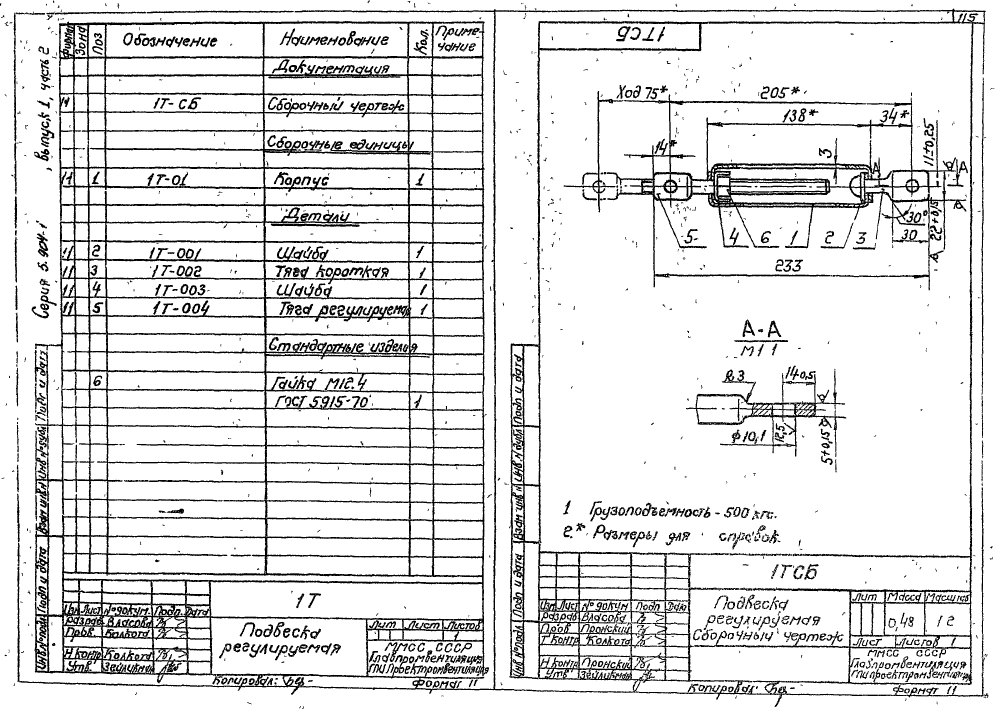 115
Серия 5.904-1, выпуск 1, часть 2
Формат Зона Поз Обозначение Наименование Кол. Приме-чание
Документация
11 1Т-СБ Сборочный чертеж
Сборочные единицы
11 1 1Т-01 Корпус 1
Детали
11 2 1Т-001 Шайба 1
11 3 1Т-002 Тяга короткая 1
11 4 1Т-003 Шайба 1
11 5 1Т-004 Тяга регулируемая 1
Стандартные изделия
6 Гайка М12.4
ГОСТ 5915-70 1
Инв № подл Подп и дата Взам инв № Инв № дубл Подп и дата
1Т
Изм Лист № докум. Подп. Дата
Разраб. Власова
Пров. Колкота
Н контр Колкота
Утв. Зейликман
Подвеска
регулируемая
Лит Лист Листов
1
ММСС СССР
Главпромвентиляция
ГПИ Проектпромвентиляция
Копировал:
Формат 11
1ТСБ
Ход 75*
205*
138*
34*
14*
3
11±0,25
А
А
22±0,15
30°
30
5 4 6 1 2 3
233
А-А
М1 1
R3
14±0,5
ф10,1
12,5
5±0,15
1 Грузоподъемность - 500 кгс.
2.* Размеры для справок.
Инв № подл Подп и дата Взам инв № Инв № дубл Подп и дата
1ТСБ
Изм Лист № докум Подп Дата
Разраб Власова
Пров Пронский
Т контр Колкота
Н контр Пронский
Утв Зейликман
Подвеска
регулируемая
Сборочный чертеж
Лит Масса Масштаб
0,48 1 2
Лист Листов 1
ММСС СССР
Главпромвентиляция
ГПИ Проектпромвентиляция
Копировал:
Формат 11